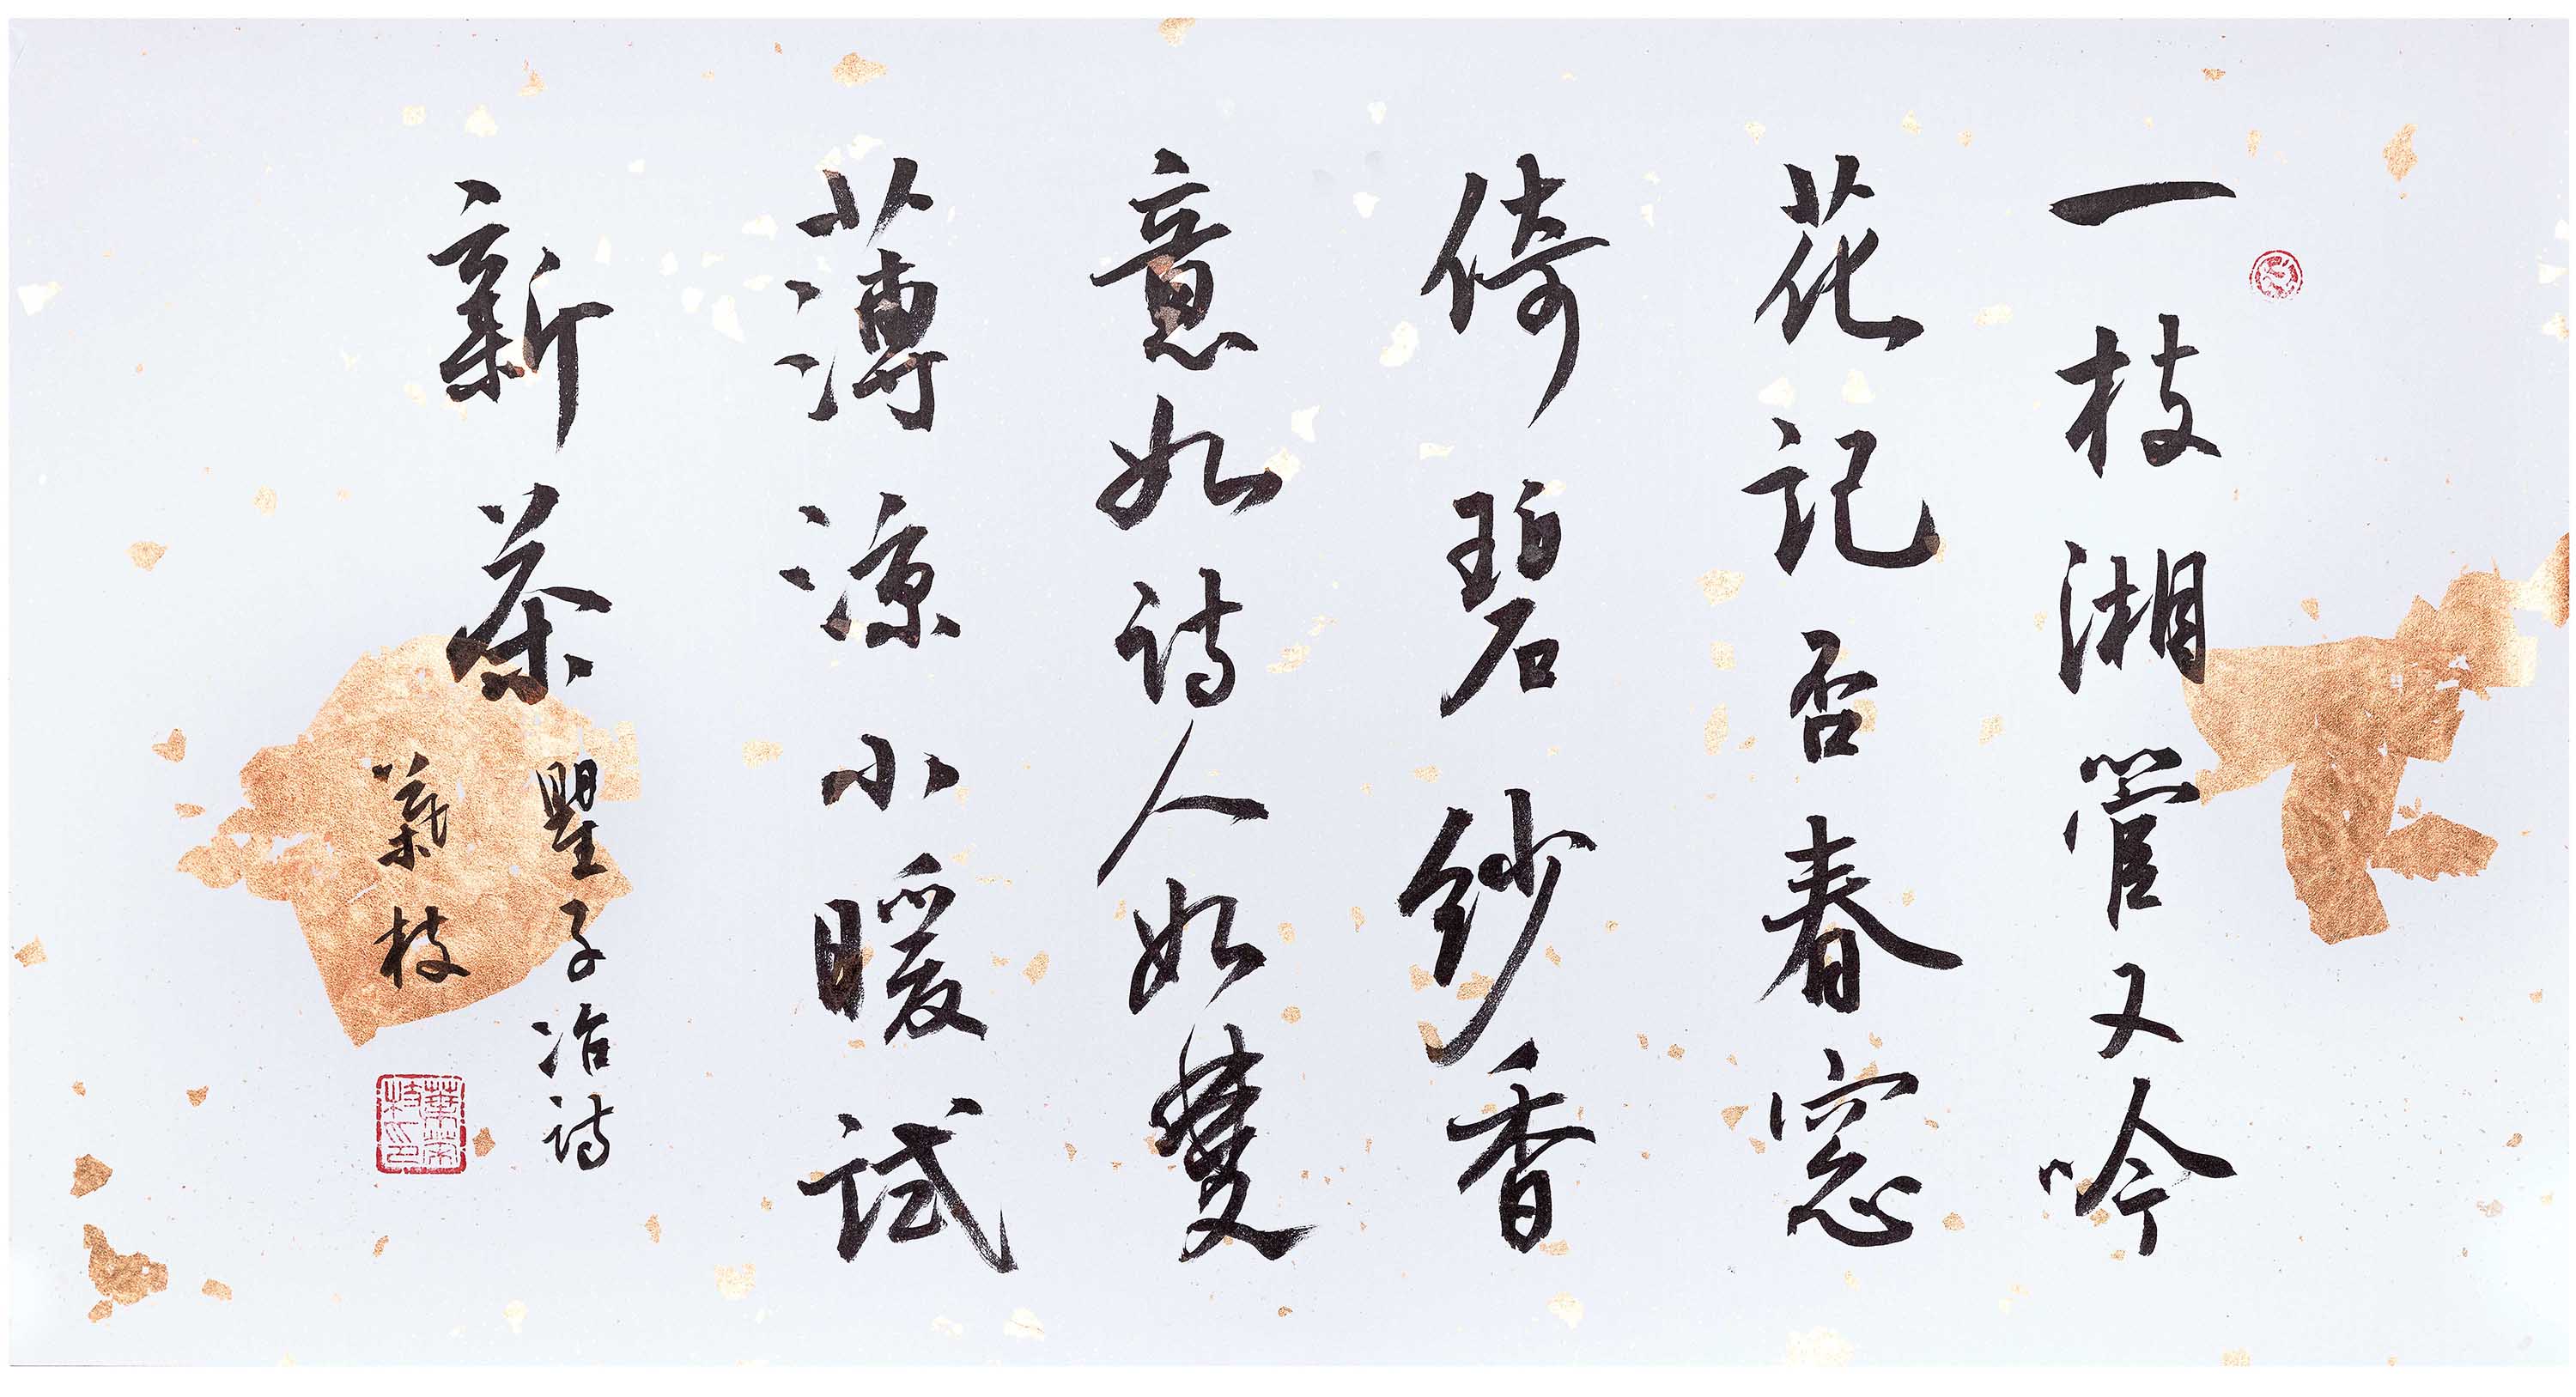 一枝湘管又吟
花記否春窓
倚碧紗香
意如詩人如
薄涼小暖試
新茶
瞿子冶詩
葉枝
葉榮枝印